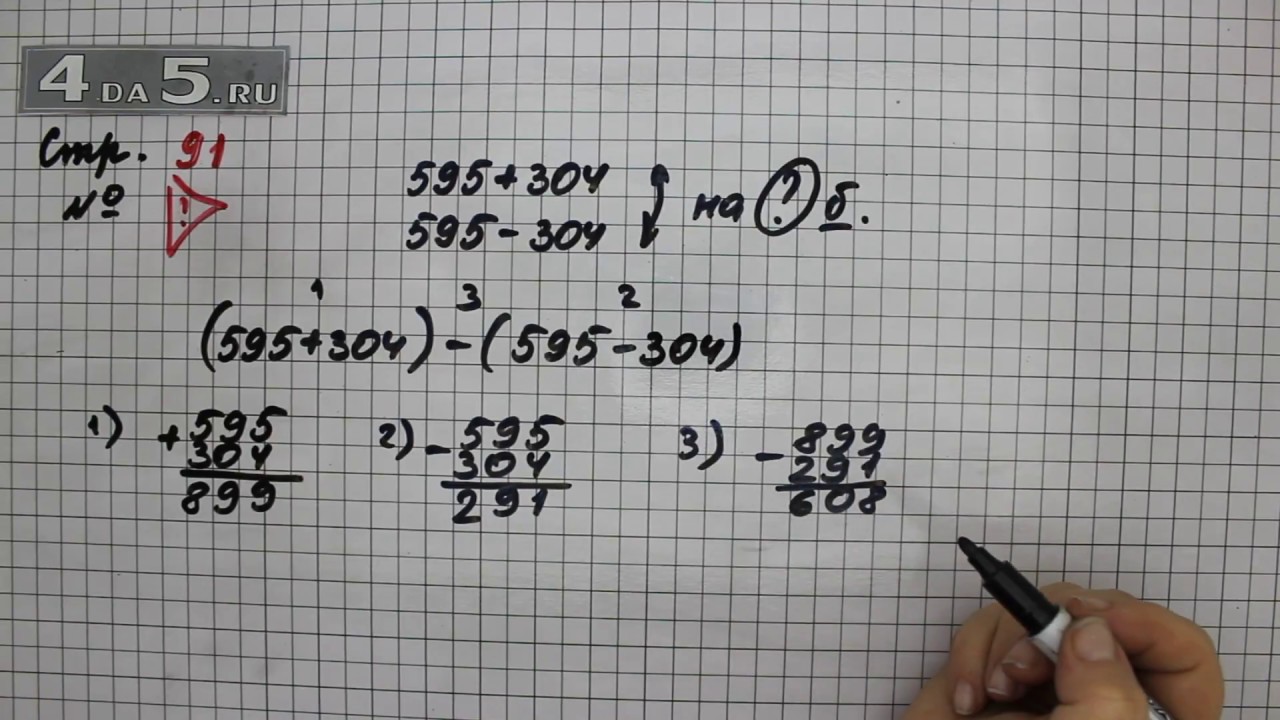 4DA5.RU
Стр. 91
№ ?
595+304
595-304
на ? б.
1 3 2
(595+304)-(595-304)
1) +595
304
899
2) -595
304
291
3) -899
291
608